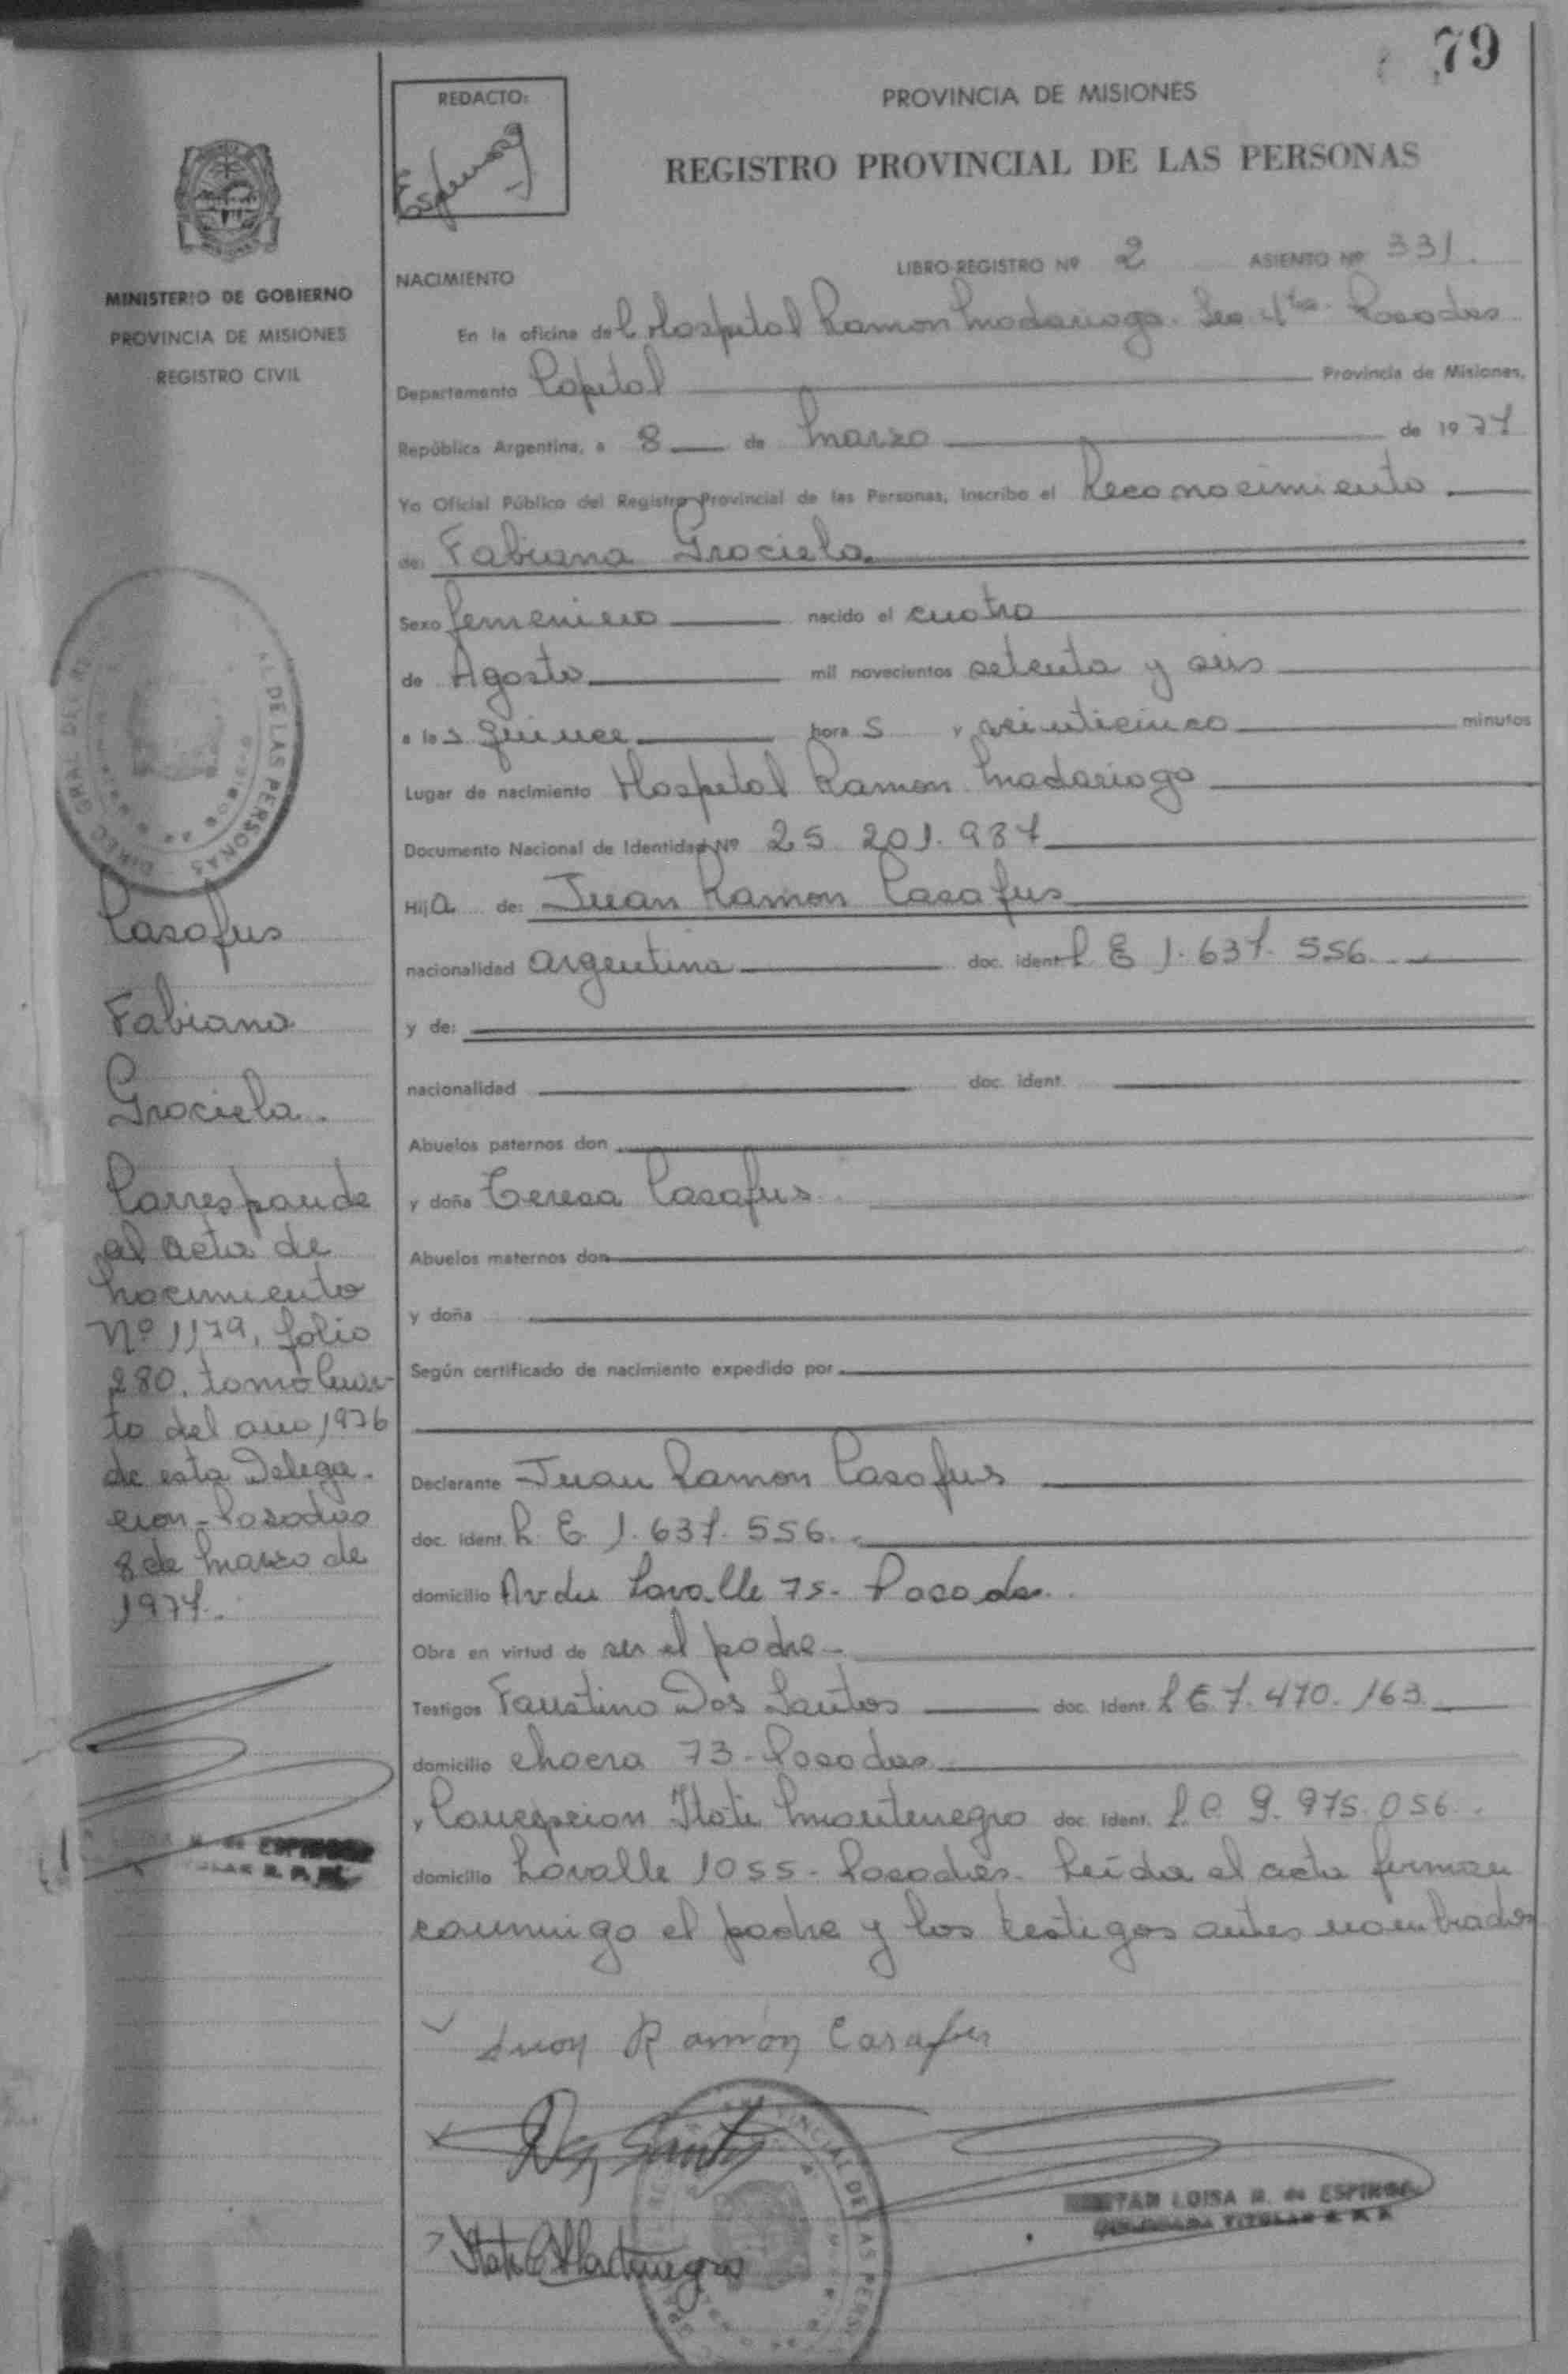 79
REDACTO:
PROVINCIA DE MISIONES
REGISTRO PROVINCIAL DE LAS PERSONAS
MINISTERIO DE GOBIERNO
PROVINCIA DE MISIONES
REGISTRO CIVIL
NACIMIENTO
LIBRO-REGISTRO Nº 2 ASIENTO Nº 331.
En la oficina del Hospital Ramon Madariaga. Sec 4ta. Posadas
Departamento Capital Provincia de Misiones,
República Argentina, a 8 de Marzo de 1977
Yo Oficial Público del Registro Provincial de las Personas, inscribo el Reconocimiento
de: Fabiana Graciela
Sexo femenino nacido el cuatro
de Agosto mil novecientos setenta y seis
a las quince horas y veinticinco minutos
Lugar de nacimiento Hospital Ramon Madariaga
Documento Nacional de Identidad Nº 25.201.987
Hija de: Juan Ramon Casafus
nacionalidad argentina doc. ident. L E 1.637.556
y de:
nacionalidad doc. ident.
Abuelos paternos don
y doña Teresa Casafus
Abuelos maternos don
y doña
Según certificado de nacimiento expedido por
Declarante Juan Ramon Casafus
doc. ident. L. E. 1.637.556.
domicilio Avda Lavalle 75- Posadas.
Obra en virtud de ser el padre
Testigos Faustino Dos Santos doc. ident. L E 7.470.163
domicilio chacra 73 - Posadas
y Concepcion Itati Montenegro doc. ident. L.C. 9.975.056.
domicilio Lavalle 1055 - Posadas. Leída el acta firman
conmigo el padre y los testigos antes nombrados
Casafus
Fabiana
Graciela.
Corresponde
al acta de
Nacimiento
Nº 1179, folio
280, tomo Cuar-
to del año 1976
de esta Delega-
cion- Posadas
8 de Marzo de
1977.
Juan Ramón Casafus
Dos Santos
Itati C Montenegro
LUISA M. de ESPINOSA
TITULAR R. P. P.